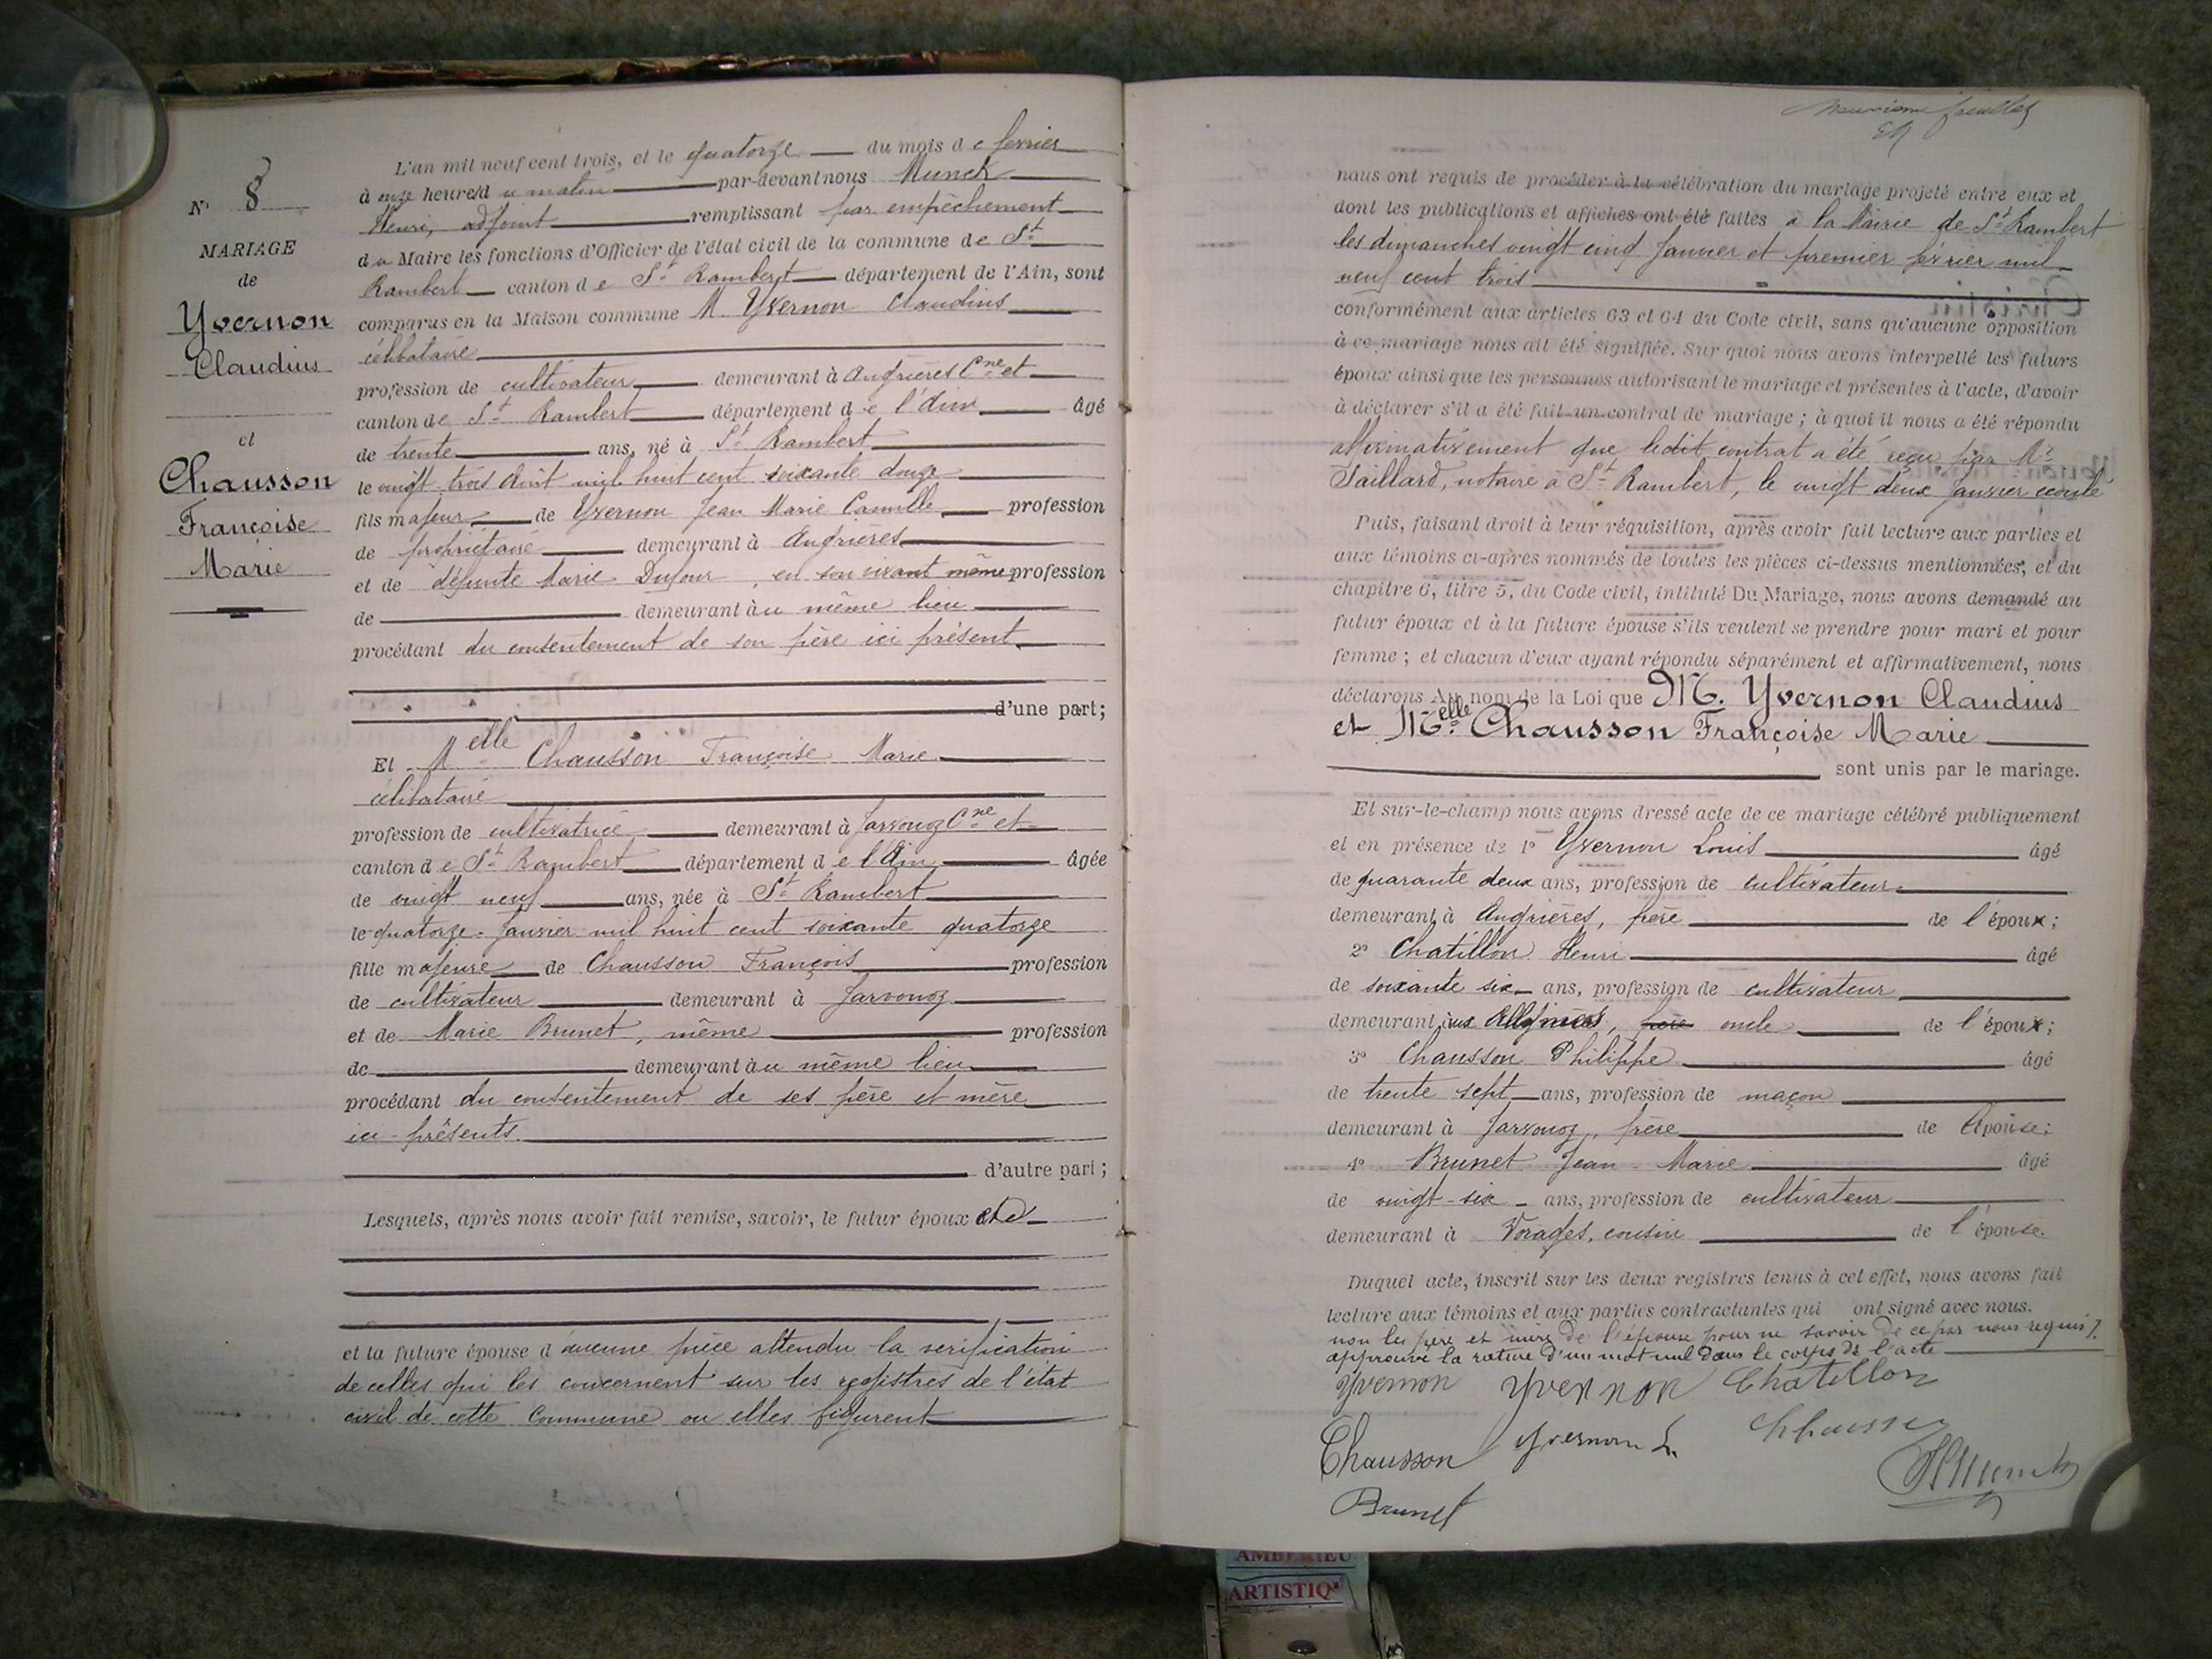 N° 8
MARIAGE
de
Yvernon
Claudius
et
Chausson
Françoise
Marie
L'an mil neuf cent trois, et le quatorze du mois de février
à onze heures du matin par-devant nous Munck
Henri, adjoint remplissant par empêchement
du Maire les fonctions d'Officier de l'état civil de la commune de St
Rambert canton de St Rambert département de l'Ain, sont
comparus en la Maison commune M. Yvernon Claudius
célibataire
profession de cultivateur demeurant à Angrières Cne et
canton de St Rambert département de l'Ain âgé
de trente ans, né à St Rambert
le vingt-trois Août mil huit cent soixante douze
fils majeur de Yvernon Jean Marie Camille profession
de propriétaire demeurant à Angrières
et de défunte Marie Dufour, en son vivant même profession
de demeurant au même lieu
procédant du consentement de son père ici présent
d'une part;
Et Melle Chausson Françoise Marie
célibataire
profession de cultivatrice demeurant à Javronoz Cne et
canton de St Rambert département de l'Ain âgée
de vingt neuf ans, née à St Rambert
le quatorze Janvier mil huit cent soixante quatorze
fille majeure de Chausson François profession
de cultivateur demeurant à
et de Marie Brunet, même profession
de demeurant au même lieu
procédant du consentement de ses père et mère
ici présents
d'autre part;
Lesquels, après nous avoir fait remise, savoir, le futur époux
et la future épouse d'aucune pièce attendu la vérification
de celles qui les concernent sur les registres de l'état
civil de cette Commune ou elles figurent
feuillet
nous ont requis de procéder à la célébration du mariage projeté entre eux et
dont les publications et affiches ont été faites à la Mairie de St Rambert
les dimanches vingt cinq Janvier et premier février mil
neuf cent trois
conformément aux articles 63 et 64 du Code civil, sans qu'aucune opposition
à ce mariage nous ait été signifiée. Sur quoi nous avons interpellé les futurs
époux ainsi que les personnes autorisant le mariage et présentes à l'acte, d'avoir
à déclarer s'il a été fait un contrat de mariage; à quoi il nous a été répondu
affirmativement que ledit contrat a été reçu par Me
Saillard, notaire à St Rambert, le vingt deux Janvier écoulé
Puis, faisant droit à leur réquisition, après avoir fait lecture aux parties et
aux témoins ci-après nommés de toutes les pièces ci-dessus mentionnées, et du
chapitre 6, titre 5, du Code civil, intitulé Du Mariage, nous avons demandé au
futur époux et à la future épouse s'ils veulent se prendre pour mari et pour
femme; et chacun d'eux ayant répondu séparément et affirmativement, nous
déclarons Au nom de la Loi que M. Yvernon Claudius
et Melle Chausson Françoise Marie
sont unis par le mariage.
Et sur-le-champ nous avons dressé acte de ce mariage célébré publiquement
et en présence de 1° Yvernon Louis âgé
de quarante deux ans, profession de cultivateur
demeurant à Angrières, frère de l'époux;
2° Chatillon Henri âgé
de soixante six ans, profession de cultivateur
demeurant aux Allymes, frère oncle de l'époux;
3° Chausson Philippe âgé
de trente sept ans, profession de maçon
demeurant à frère de l'épouse;
4° Brunet Jean-Marie âgé
de vingt-six ans, profession de cultivateur
demeurant à Vorages, cousin de l'épouse.
Duquel acte, inscrit sur les deux registres tenus à cet effet, nous avons fait
lecture aux témoins et aux parties contractantes qui ont signé avec nous.
non les père et mère de l'épouse pour ne savoir de ce par nous requis.
approuvé la rature d'un mot nul dans le corps de l'acte
Yvernon Yvernon Chatillon
Chausson Yvernon L. Chausson
HMunck
Brunet
AMBERIEU
ARTISTIQ